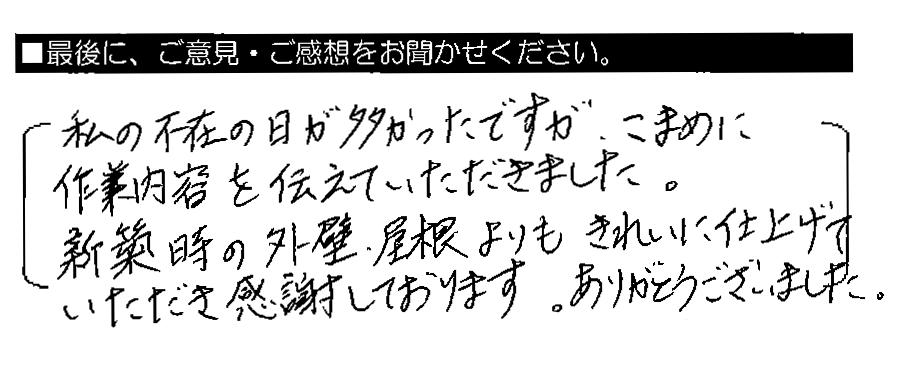 ■最後に、ご意見・ご感想をお聞かせください。
私の不在の日が多かったですが、こまめに
作業内容を伝えていただきました。
新築時の外壁、屋根よりもきれいに仕上げて
いただき感謝しております。ありがとうございました。